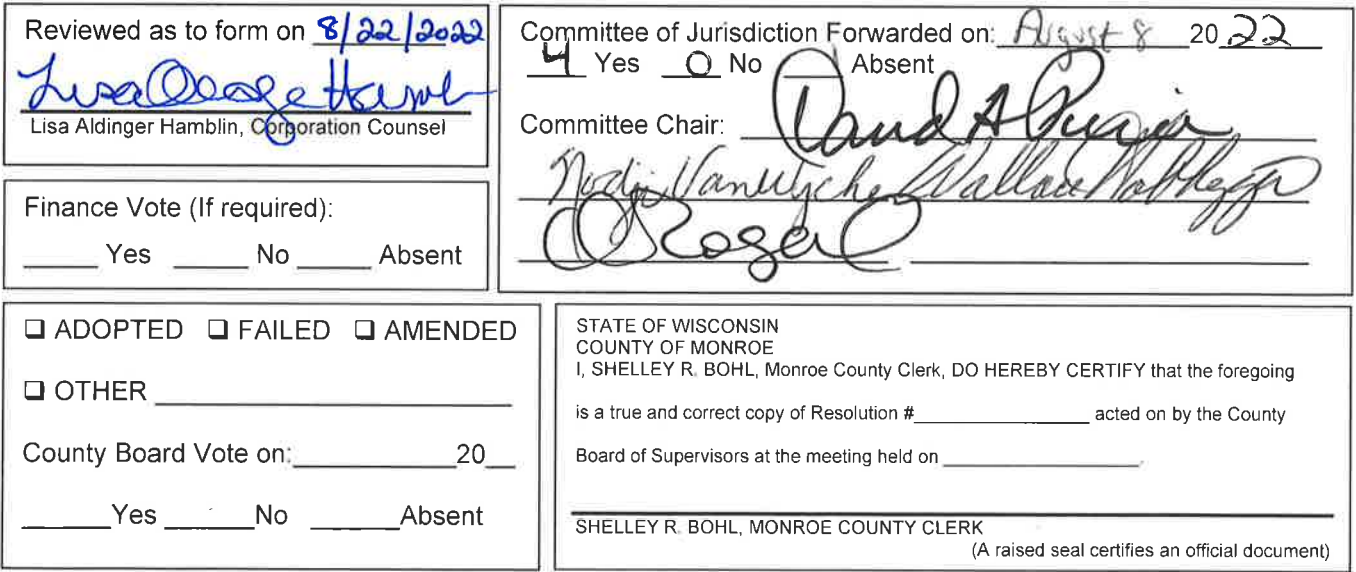 Reviewed as to form on 8/22/2022
Lisa Aldinger Hamblin, Corporation Counsel
Finance Vote (If required):
____ Yes ____ No ____ Absent
Committee of Jurisdiction Forwarded on: August 8 20 22
4 Yes 0 No ___ Absent
Committee Chair: David A
Nodji VanWychen Wallace Habhegger
❑ ADOPTED ❑ FAILED ❑ AMENDED
❑ OTHER ____________________
County Board Vote on:__________20__
_____Yes _____No _____Absent
STATE OF WISCONSIN
COUNTY OF MONROE
I, SHELLEY R. BOHL, Monroe County Clerk, DO HEREBY CERTIFY that the foregoing
is a true and correct copy of Resolution #________________ acted on by the County
Board of Supervisors at the meeting held on __________________.
SHELLEY R. BOHL, MONROE COUNTY CLERK
(A raised seal certifies an official document)